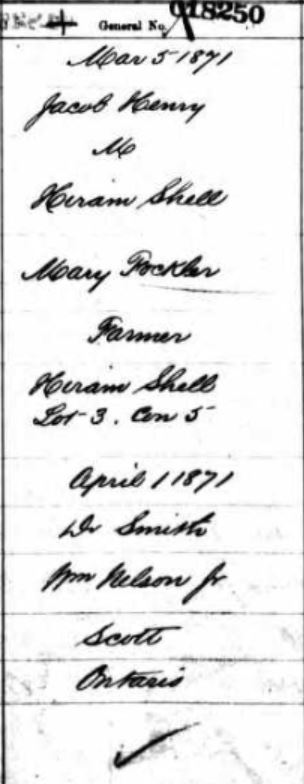 General No. 018250
Mar 5 1871
Jacob Henry
M
Hiram Shell
Mary Fockler
Farmer
Hiram Shell
Lot 3. Con 5
April 1 1871
Dr Smith
Wm Nelson Jr
Scott
Ontario